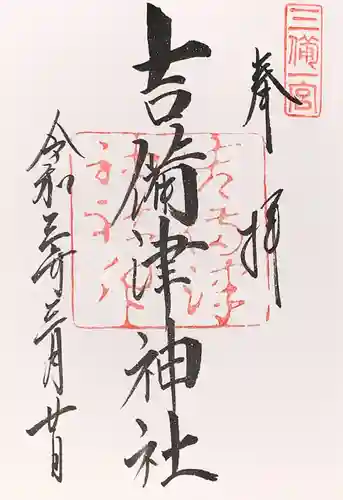 三備一宮
奉拝
吉備津神社
令和三年三月廿日